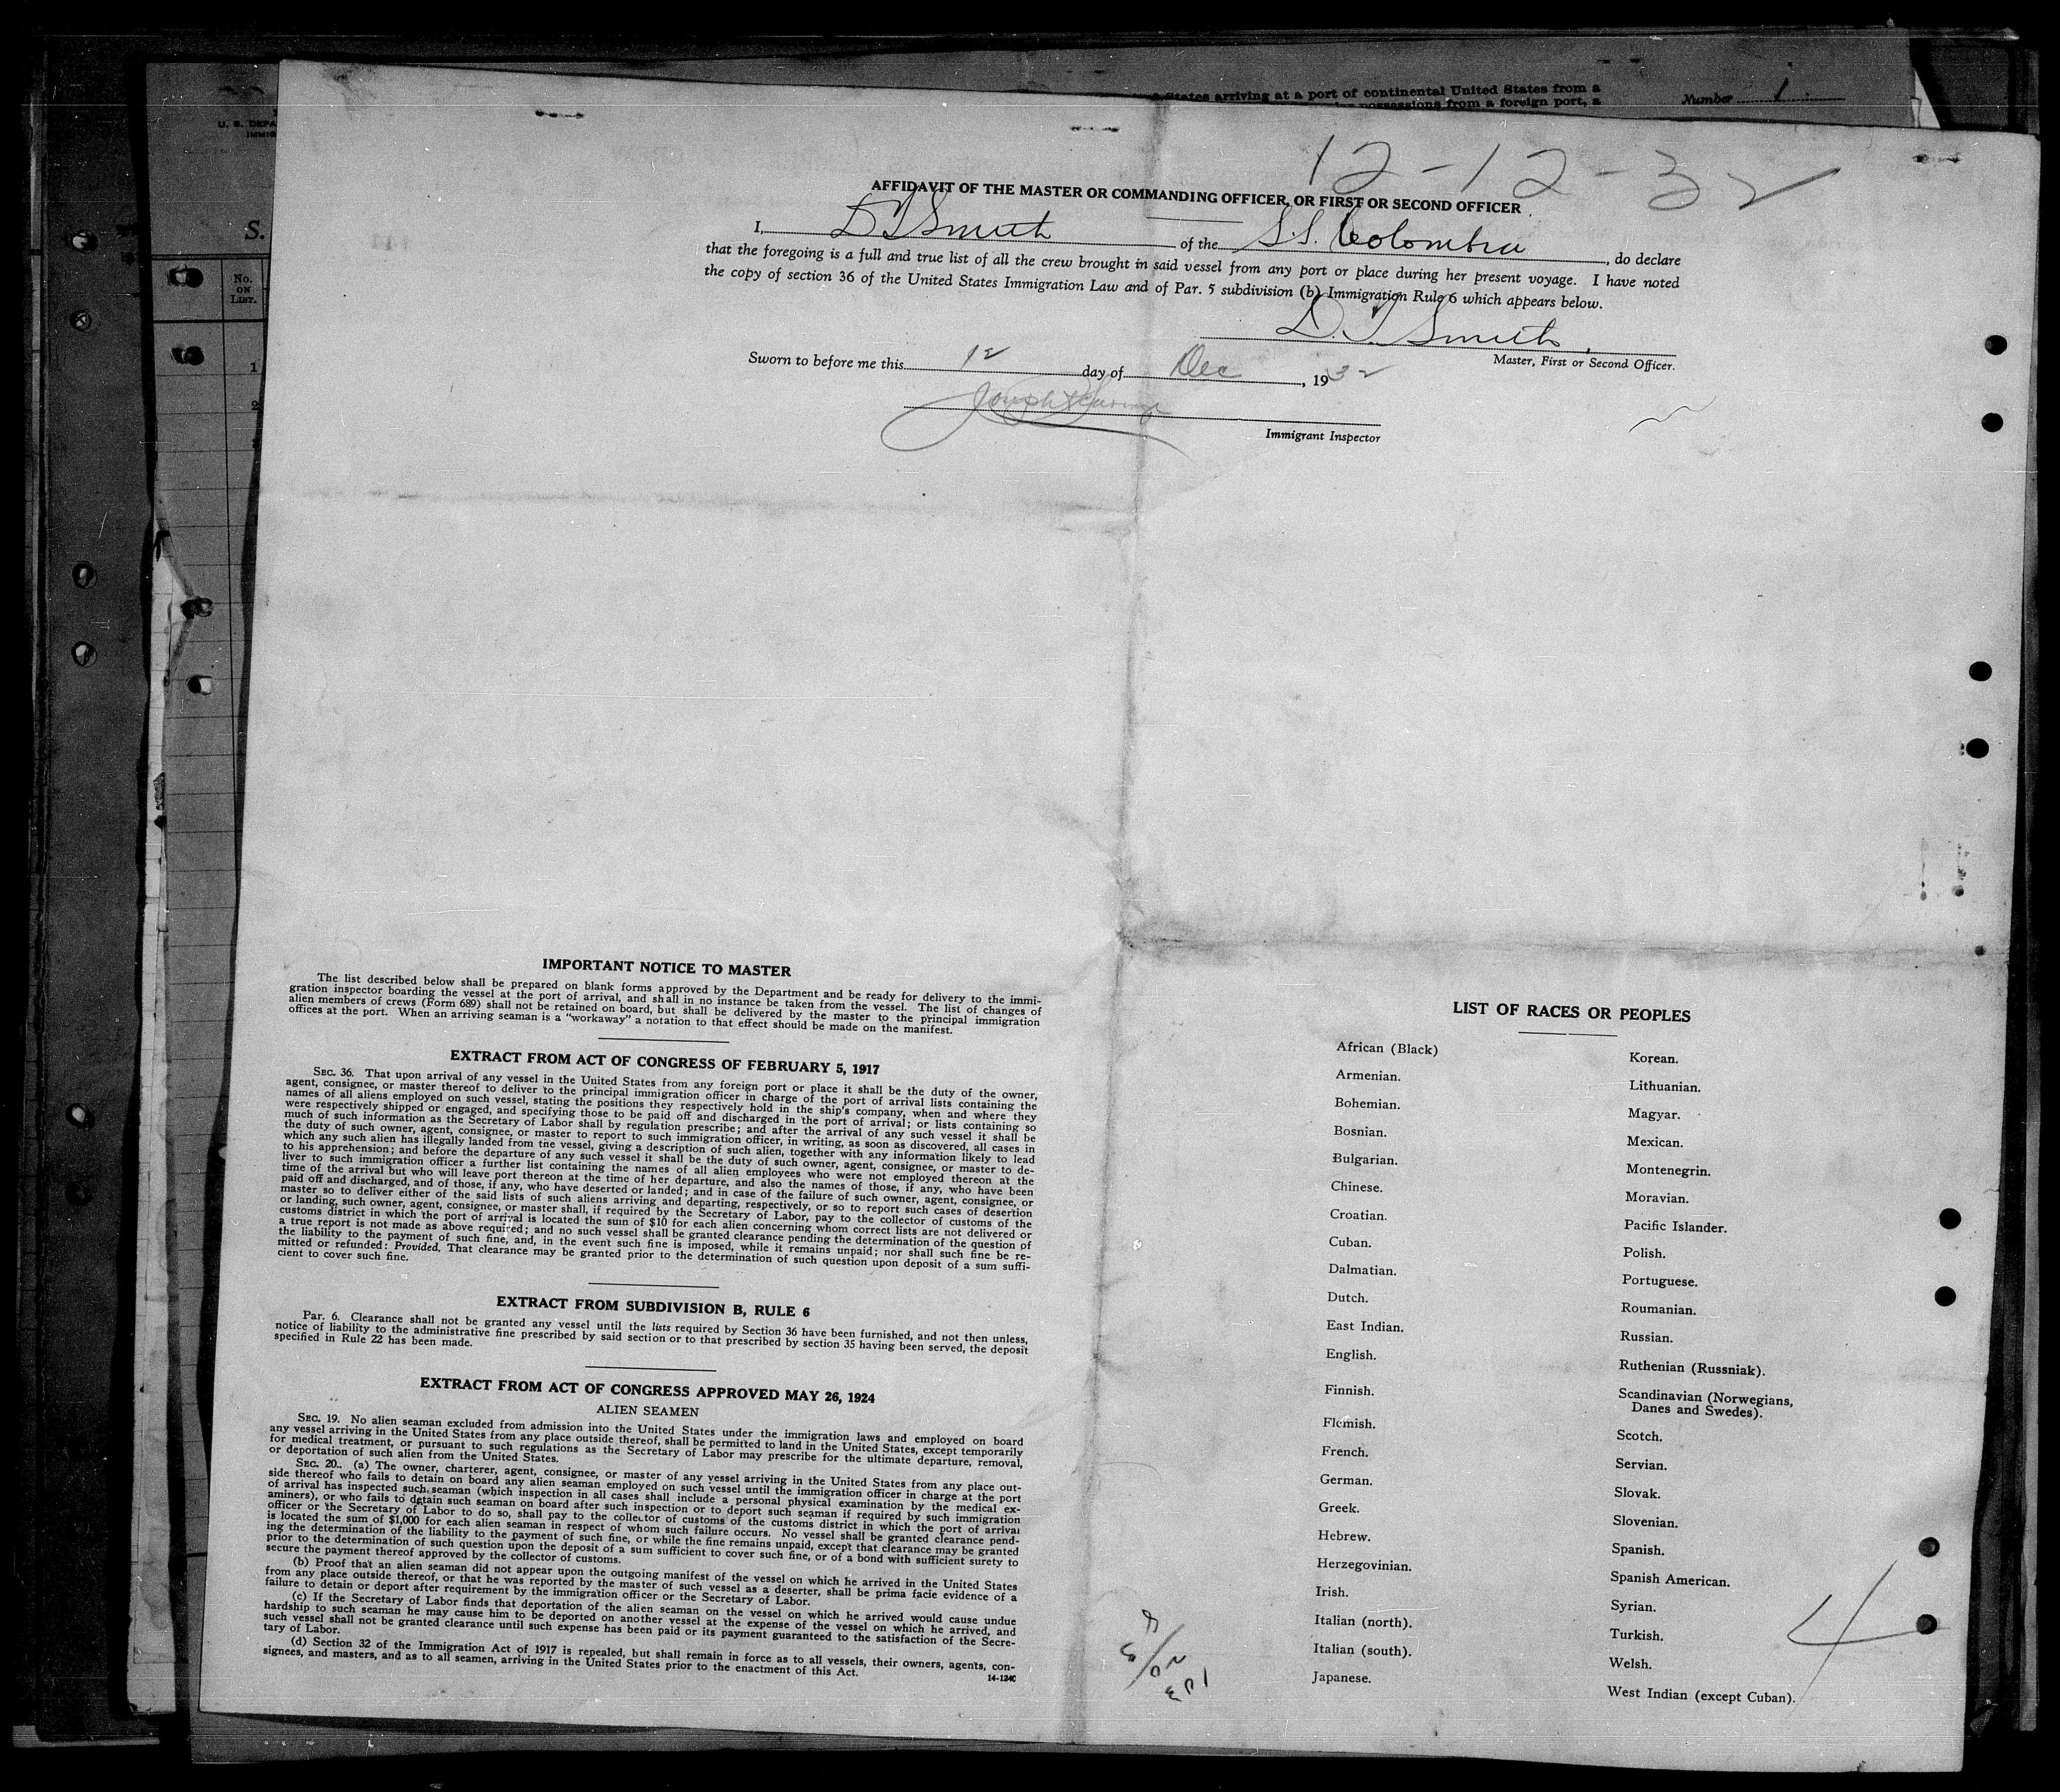 States arriving at a port of continental United States from a
possessions from a foreign port, a
Number 1
U. S. DEPA
IMMIG
S.
No.
ON
LIST.
1
2
12-12-32
AFFIDAVIT OF THE MASTER OR COMMANDING OFFICER, OR FIRST OR SECOND OFFICER
I, D T Smith of the S.S. Colombia, do declare
that the foregoing is a full and true list of all the crew brought in said vessel from any port or place during her present voyage. I have noted
the copy of section 36 of the United States Immigration Law and of Par. 5 subdivision (b) Immigration Rule 6 which appears below.
D. T. Smith
Master, First or Second Officer.
Sworn to before me this 12 day of Dec, 1932
Immigrant Inspector
IMPORTANT NOTICE TO MASTER
The list described below shall be prepared on blank forms approved by the Department and be ready for delivery to the immi-
gration inspector boarding the vessel at the port of arrival, and shall in no instance be taken from the vessel. The list of changes of
alien members of crews (Form 689) shall not be retained on board, but shall be delivered by the master to the principal immigration
offices at the port. When an arriving seaman is a "workaway" a notation to that effect should be made on the manifest.
EXTRACT FROM ACT OF CONGRESS OF FEBRUARY 5, 1917
SEC. 36. That upon arrival of any vessel in the United States from any foreign port or place it shall be the duty of the owner,
agent, consignee, or master thereof to deliver to the principal immigration officer in charge of the port of arrival lists containing the
names of all aliens employed on such vessel, stating the positions they respectively hold in the ship's company, when and where they
were respectively shipped or engaged, and specifying those to be paid off and discharged in the port of arrival; or lists containing so
much of such information as the Secretary of Labor shall by regulation prescribe; and after the arrival of any such vessel it shall be
the duty of such owner, agent, consignee, or master to report to such immigration officer, in writing, as soon as discovered, all cases in
which any such alien has illegally landed from the vessel, giving a description of such alien, together with any information likely to lead
to his apprehension; and before the departure of any such vessel it shall be the duty of such owner, agent, consignee, or master to de-
liver to such immigration officer a further list containing the names of all alien employees who were not employed thereon at the
time of the arrival but who will leave port thereon at the time of her departure, and also the names of those, if any, who have been
paid off and discharged, and of those, if any, who have deserted or landed; and in case of the failure of such owner, agent, consignee, or
master so to deliver either of the said lists of such aliens arriving and departing, respectively, or so to report such cases of desertion
or landing, such owner, agent, consignee, or master shall, if required by the Secretary of Labor, pay to the collector of customs of the
customs district in which the port of arrival is located the sum of $10 for each alien concerning whom correct lists are not delivered or
a true report is not made as above required; and no such vessel shall be granted clearance pending the determination of the question of
the liability to the payment of such fine, and, in the event such fine is imposed, while it remains unpaid; nor shall such fine be re-
mitted or refunded: Provided, That clearance may be granted prior to the determination of such question upon deposit of a sum suffi-
cient to cover such fine.
EXTRACT FROM SUBDIVISION B, RULE 6
Par. 6. Clearance shall not be granted any vessel until the lists required by Section 36 have been furnished, and not then unless,
notice of liability to the administrative fine prescribed by said section or to that prescribed by section 35 having been served, the deposit
specified in Rule 22 has been made.
EXTRACT FROM ACT OF CONGRESS APPROVED MAY 26, 1924
ALIEN SEAMEN
SEC. 19. No alien seaman excluded from admission into the United States under the immigration laws and employed on board
any vessel arriving in the United States from any place outside thereof, shall be permitted to land in the United States, except temporarily
for medical treatment, or pursuant to such regulations as the Secretary of Labor may prescribe for the ultimate departure, removal,
or deportation of such alien from the United States.
SEC. 20. (a) The owner, charterer, agent, consignee, or master of any vessel arriving in the United States from any place out-
side thereof who fails to detain on board any alien seaman employed on such vessel until the immigration officer in charge at the port
of arrival has inspected such seaman (which inspection in all cases shall include a personal physical examination by the medical ex-
aminers), or who fails to detain such seaman on board after such inspection or to deport such seaman if required by such immigration
officer or the Secretary of Labor to do so, shall pay to the collector of customs of the customs district in which the port of arrival
is located the sum of $1,000 for each alien seaman in respect of whom such failure occurs. No vessel shall be granted clearance pend-
ing the determination of the liability to the payment of such fine, or while the fine remains unpaid, except that clearance may be granted
prior to the determination of such question upon the deposit of a sum sufficient to cover such fine, or of a bond with sufficient surety to
secure the payment thereof approved by the collector of customs.
(b) Proof that an alien seaman did not appear upon the outgoing manifest of the vessel on which he arrived in the United States
from any place outside thereof, or that he was reported by the master of such vessel as a deserter, shall be prima facie evidence of a
failure to detain or deport after requirement by the immigration officer or the Secretary of Labor.
(c) If the Secretary of Labor finds that deportation of the alien seaman on the vessel on which he arrived would cause undue
hardship to such seaman he may cause him to be deported on another vessel at the expense of the vessel on which he arrived, and
such vessel shall not be granted clearance until such expense has been paid or its payment guaranteed to the satisfaction of the Secre-
tary of Labor.
(d) Section 32 of the Immigration Act of 1917 is repealed, but shall remain in force as to all vessels, their owners, agents, con-
signees, and masters, and as to all seamen, arriving in the United States prior to the enactment of this Act.
14-1240
LIST OF RACES OR PEOPLES
African (Black)
Armenian.
Bohemian.
Bosnian.
Bulgarian.
Chinese.
Croatian.
Cuban.
Dalmatian.
Dutch.
East Indian.
English.
Finnish.
Flemish.
French.
German.
Greek.
Hebrew.
Herzegovinian.
Irish.
Italian (north).
Italian (south).
Japanese.
Korean.
Lithuanian.
Magyar.
Mexican.
Montenegrin.
Moravian.
Pacific Islander.
Polish.
Portuguese.
Roumanian.
Russian.
Ruthenian (Russniak).
Scandinavian (Norwegians,
Danes and Swedes).
Scotch.
Servian.
Slovak.
Slovenian.
Spanish.
Spanish American.
Syrian.
Turkish.
Welsh.
West Indian (except Cuban).
4